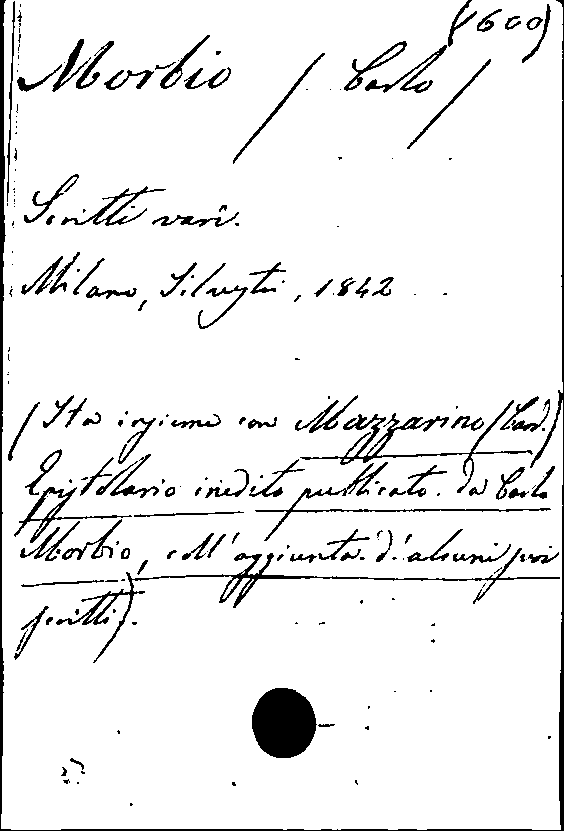 (600)
Morbio / Carlo /
Scritti varî.
Milano, Silvestri, 1842
(Sta insieme con Mazzarino (Card.)
Epistolario inedito pubblicato da Carlo
Morbio, coll'aggiunta d'alcuni suoi
scritti).